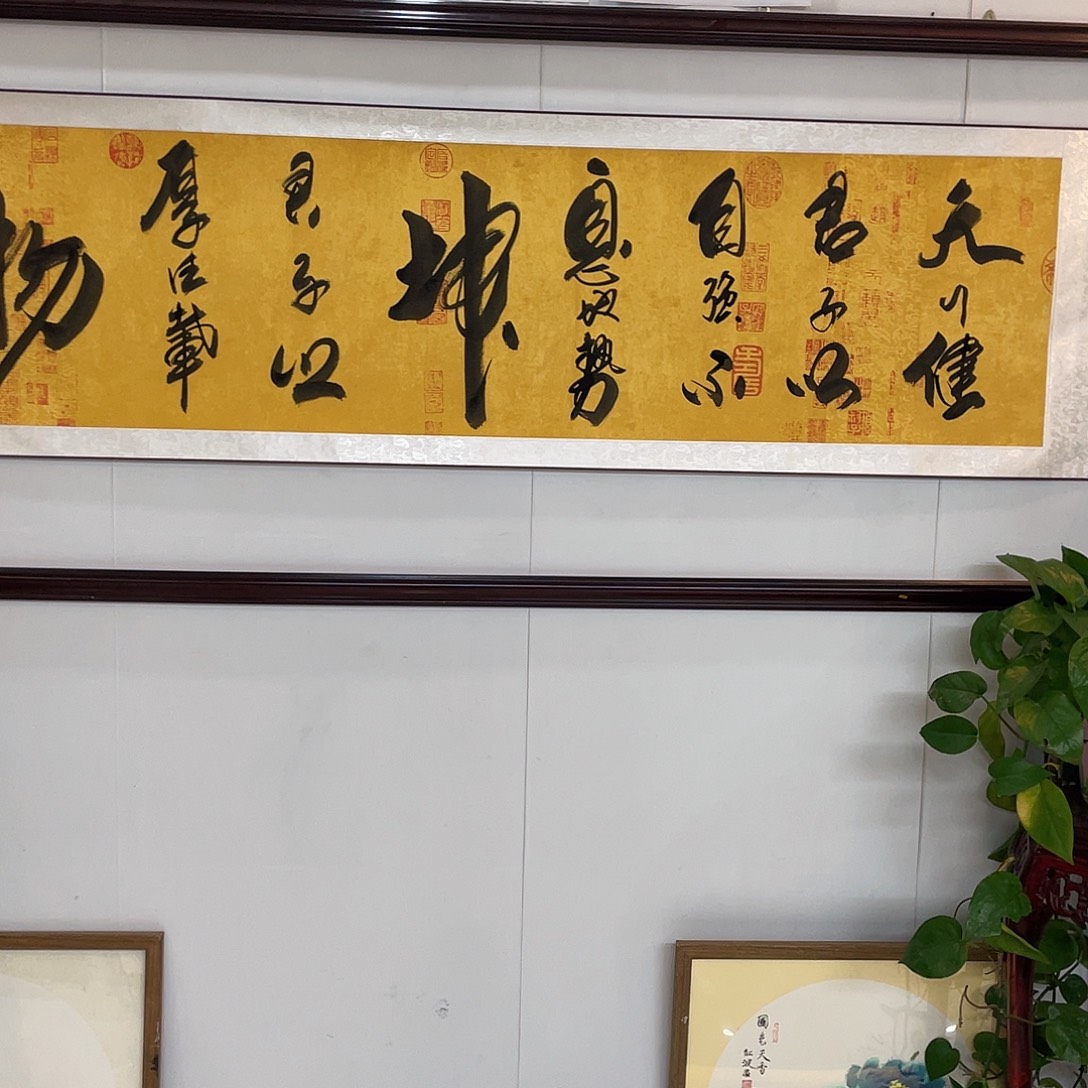 天行健
君子以
自强不
息地勢
坤
君子以
厚德載
物
國色天香